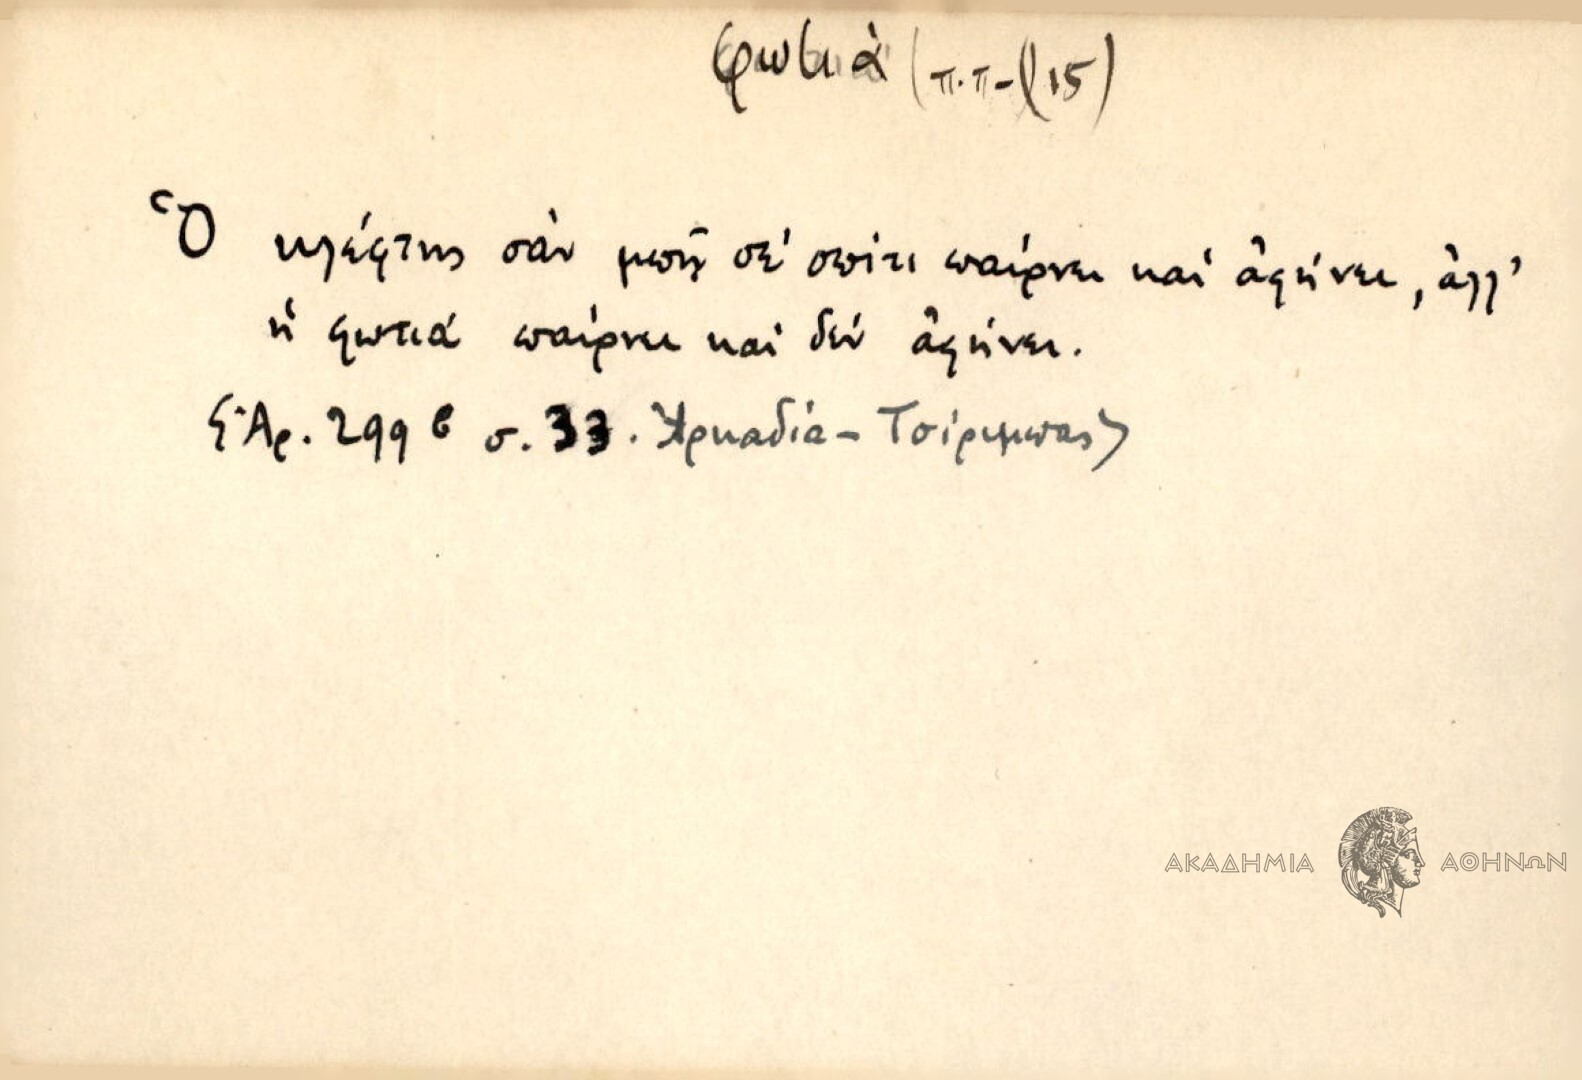 φωτιὰ (π.π-(15)
Ὁ κλέφτης σὰν μπῇ σέ σπίτι παίρνει καί ἀφήνει, ἀλλ'
ἡ φωτιά παίρνει καί δέν ἀφήνει.
Ἀρ. 299 6 σ. 33. Ἀρκαδία - Τσίριμπας
ΑΚΑΔΗΜΙΑ ΑΘΗΝΩΝ